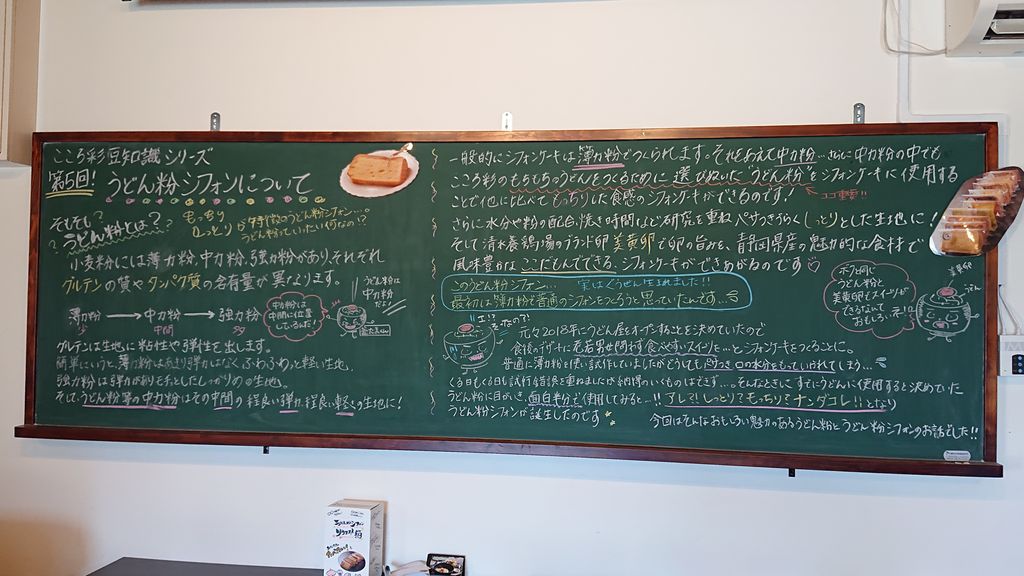 こころ彩豆知識シリーズ
第5回! うどん粉シフォンについて
そもそも?
うどん粉とは?
もっちり しっとりが特徴のうどん粉シフォン。
うどん粉っていったい何なの!?
小麦粉には薄力粉、中力粉、強力粉があり、それぞれ
グルテンの質やタンパク質の含有量が異なります。
薄力粉 → 中力粉 → 強力粉
少 中間 多
中力粉は
中間に位置
しているんだ!
うどん粉は
中力粉
グルテンは生地に粘性や弾性を出します。
簡単にいうと、薄力粉はあまり弾力はなくふわふわっと軽い生地、
強力粉は弾力がありモチっとしたしっかりめの生地。
そして、うどん粉等の中力粉はその中間の程良い弾力、程良い軽さの生地に!
一般的にシフォンケーキは薄力粉でつくられます。それをあえて中力粉…さらに中力粉の中でも
こころ彩のもちもちのうどんをつくるために選びぬいた"うどん粉"をシフォンケーキに使用する
ことで他に比べてもっちりした食感のシフォンケーキができるのです!
ココ重要!!
さらに水分や粉の配合、焼き時間など研究を重ねパサつきづらくしっとりとした生地に!
そして清水養鶏場のブランド卵 美黄卵で卵の旨みを、静岡県産の魅力的な食材で
風味豊かな ここだんでできる シフォンケーキができあがるのです♡
このうどん粉シフォン… 実はぐうぜん生まれました!!
最初は薄力粉で普通のシフォンをつくろうと思っていたんです…
元々2018年にうどん屋をオープンすることを決めていたので
食後のデザートに老若男女問わず食べやすいスイーツを…とシフォンをつくることに。
普通に薄力粉と使い試作していましたがどうしてもパサつき口の水分をもっていかれてしまう…
くる日もくる日も試行錯誤を重ねましたが納得のいくものはできず…そんなときに、すでにうどんに使用すると決めていた
うどん粉に目がいき、面白料分で使用してみると…!! アレ?! しっとりでもっちりでナンダコレ!! となり
うどん粉シフォンが誕生したのです
今回はそんなおもしろい魅力のあるうどん粉とうどん粉シフォンのお話でした!!
美黄卵
うどん